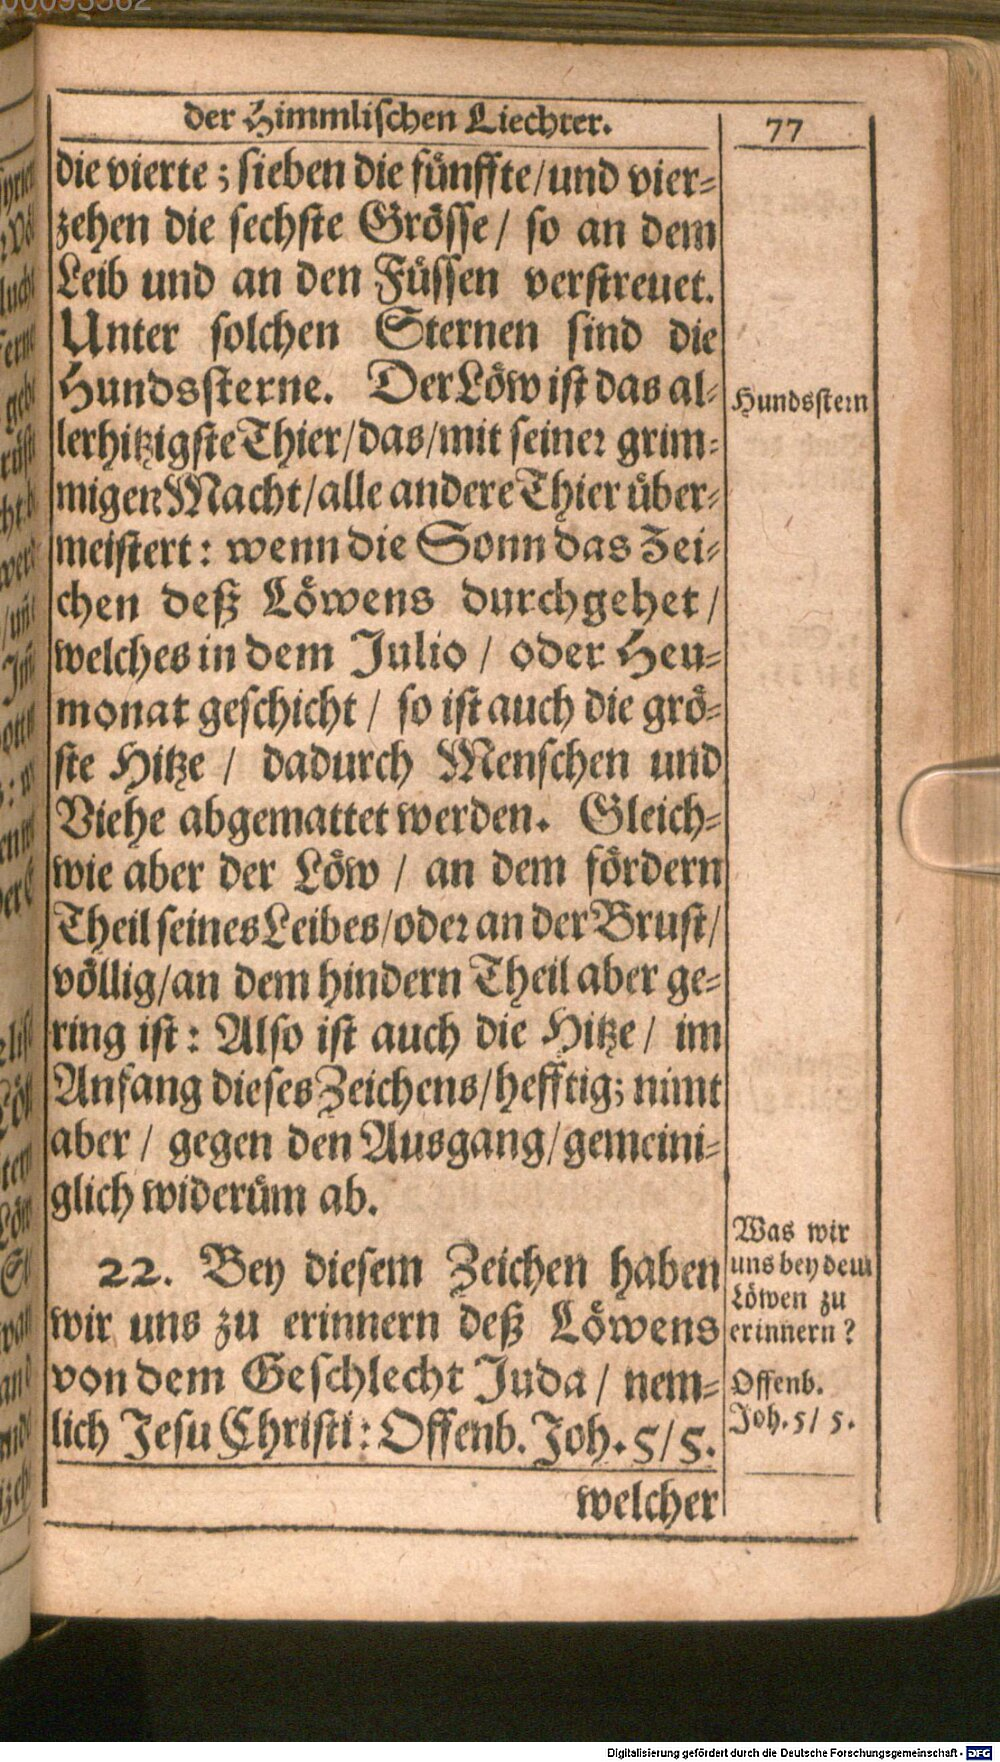 der Himmlischen Liechter.
77
die vierte; sieben die fünffte/und vier-
zehen die sechste Grösse/ so an dem
Leib und an den Füssen verstreuet.
Unter solchen Sternen sind die
Hundssterne. Der Löw ist das al-
lerhitzigste Thier/das/mit seiner grim-
migen Macht/alle andere Thier über-
meistert: wenn die Sonn das Zei-
chen deß Löwens durchgehet/
welches in dem Julio / oder Heu-
monat geschicht / so ist auch die grö-
ste Hitze / dadurch Menschen und
Viehe abgemattet werden. Gleich-
wie aber der Löw / an dem fördern
Theil seines Leibes/oder an der Brust/
völlig/an dem hindern Theil aber ge-
ring ist: Also ist auch die Hitze/ im
Anfang dieses Zeichens/hefftig; nimt
aber / gegen den Ausgang/gemeini-
glich widerüm ab.
22. Bey diesem Zeichen haben
wir uns zu erinnern deß Löwens
von dem Geschlecht Juda / nem-
lich Jesu Christi: Offenb. Joh. 5/5.
welcher
Hundsstern
Was wir
uns bey dem
Löwen zu
erinnern?
Offenb.
Joh. 5/ 5.
Digitalisierung gefördert durch die Deutsche Forschungsgemeinschaft - DFG